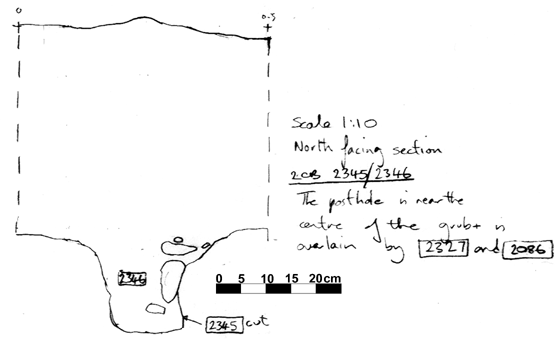 0
0.5
Scale 1:10
North facing section
2CB 2345/2346
The posthole is near the
centre of the grub + is
overlain by 2327 and 2086
2346
0 5 10 15 20cm
2345 cut